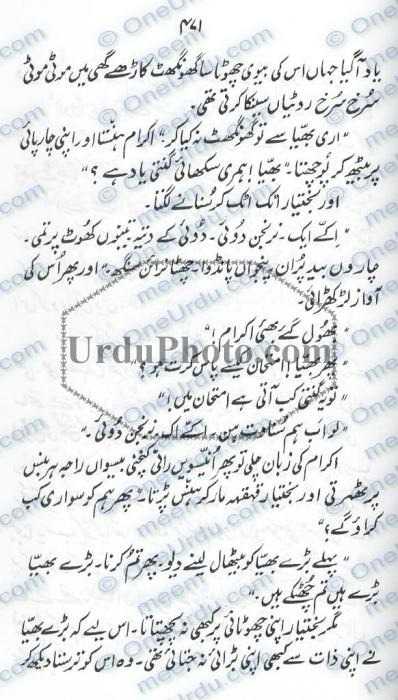 ۴۷۱
یاد آگیا جہاں اس کی بیوی چھوٹا سا گھونگھٹ کاڑھے گھی میں موٹی موٹی
سُرخ سُرخ روٹیاں سینکا کرتی تھی۔
"اری بھیّا سے تو گھونگھٹ نہ کیا کر۔" اکرام ہنستا اور اپنی چارپائی
پر بیٹھ کر پُوچھتا۔ "بھیّا! ہمری سکھائی گنتی یاد ہے؟"
اور بختیار اٹک اٹک کر سُنانے لگتا۔
"اِکّے ایک۔ نرنجن دوئی۔ دوئی کے دتیہ تینوں کھُوٹ پرتمی۔
چاروں بید پُران، پنچواں پانڈوا۔ چھٹا نرائن سنگھ۔" اور پھر اُس کی
آواز لڑکھڑائی۔
"بھُول گئے بھئی اکرام!"
UrduPhoto.com
"پھر بھیّا! امتحان کیسے پاس کرت ہو؟"
"تو یہ گنتی کب آتی ہے امتحان میں!"
"لو اب ہم سُناوت ہیں۔ اِکّے اک۔ نرنجن دوئی۔"
اکرام کی زبان چلتی تو پھر اُنّیسویں رانی کیچنی بیسواں راجہ ہربنس
پر ٹھہرتی اور بختیار قہقہہ مار کر ہنس پڑتا۔ "پھر ہم کو سواری کب
کراؤ گے؟"
"پہلے بڑے بھیّا کو بیٹھال لینے دیو۔ پھر تم کرنا۔ بڑے بھیّا
بڑے ہیں تم چھُٹکے ہیں۔"
مگر بختیار اپنی چھوٹائی پر کبھی نہ پچھتاتا۔ اس لیے کہ بڑے بھیّا
نے اپنی ذات سے کبھی اپنی بڑائی نہ جتائی تھی۔ وہ اس کو ترستا دیکھ کر